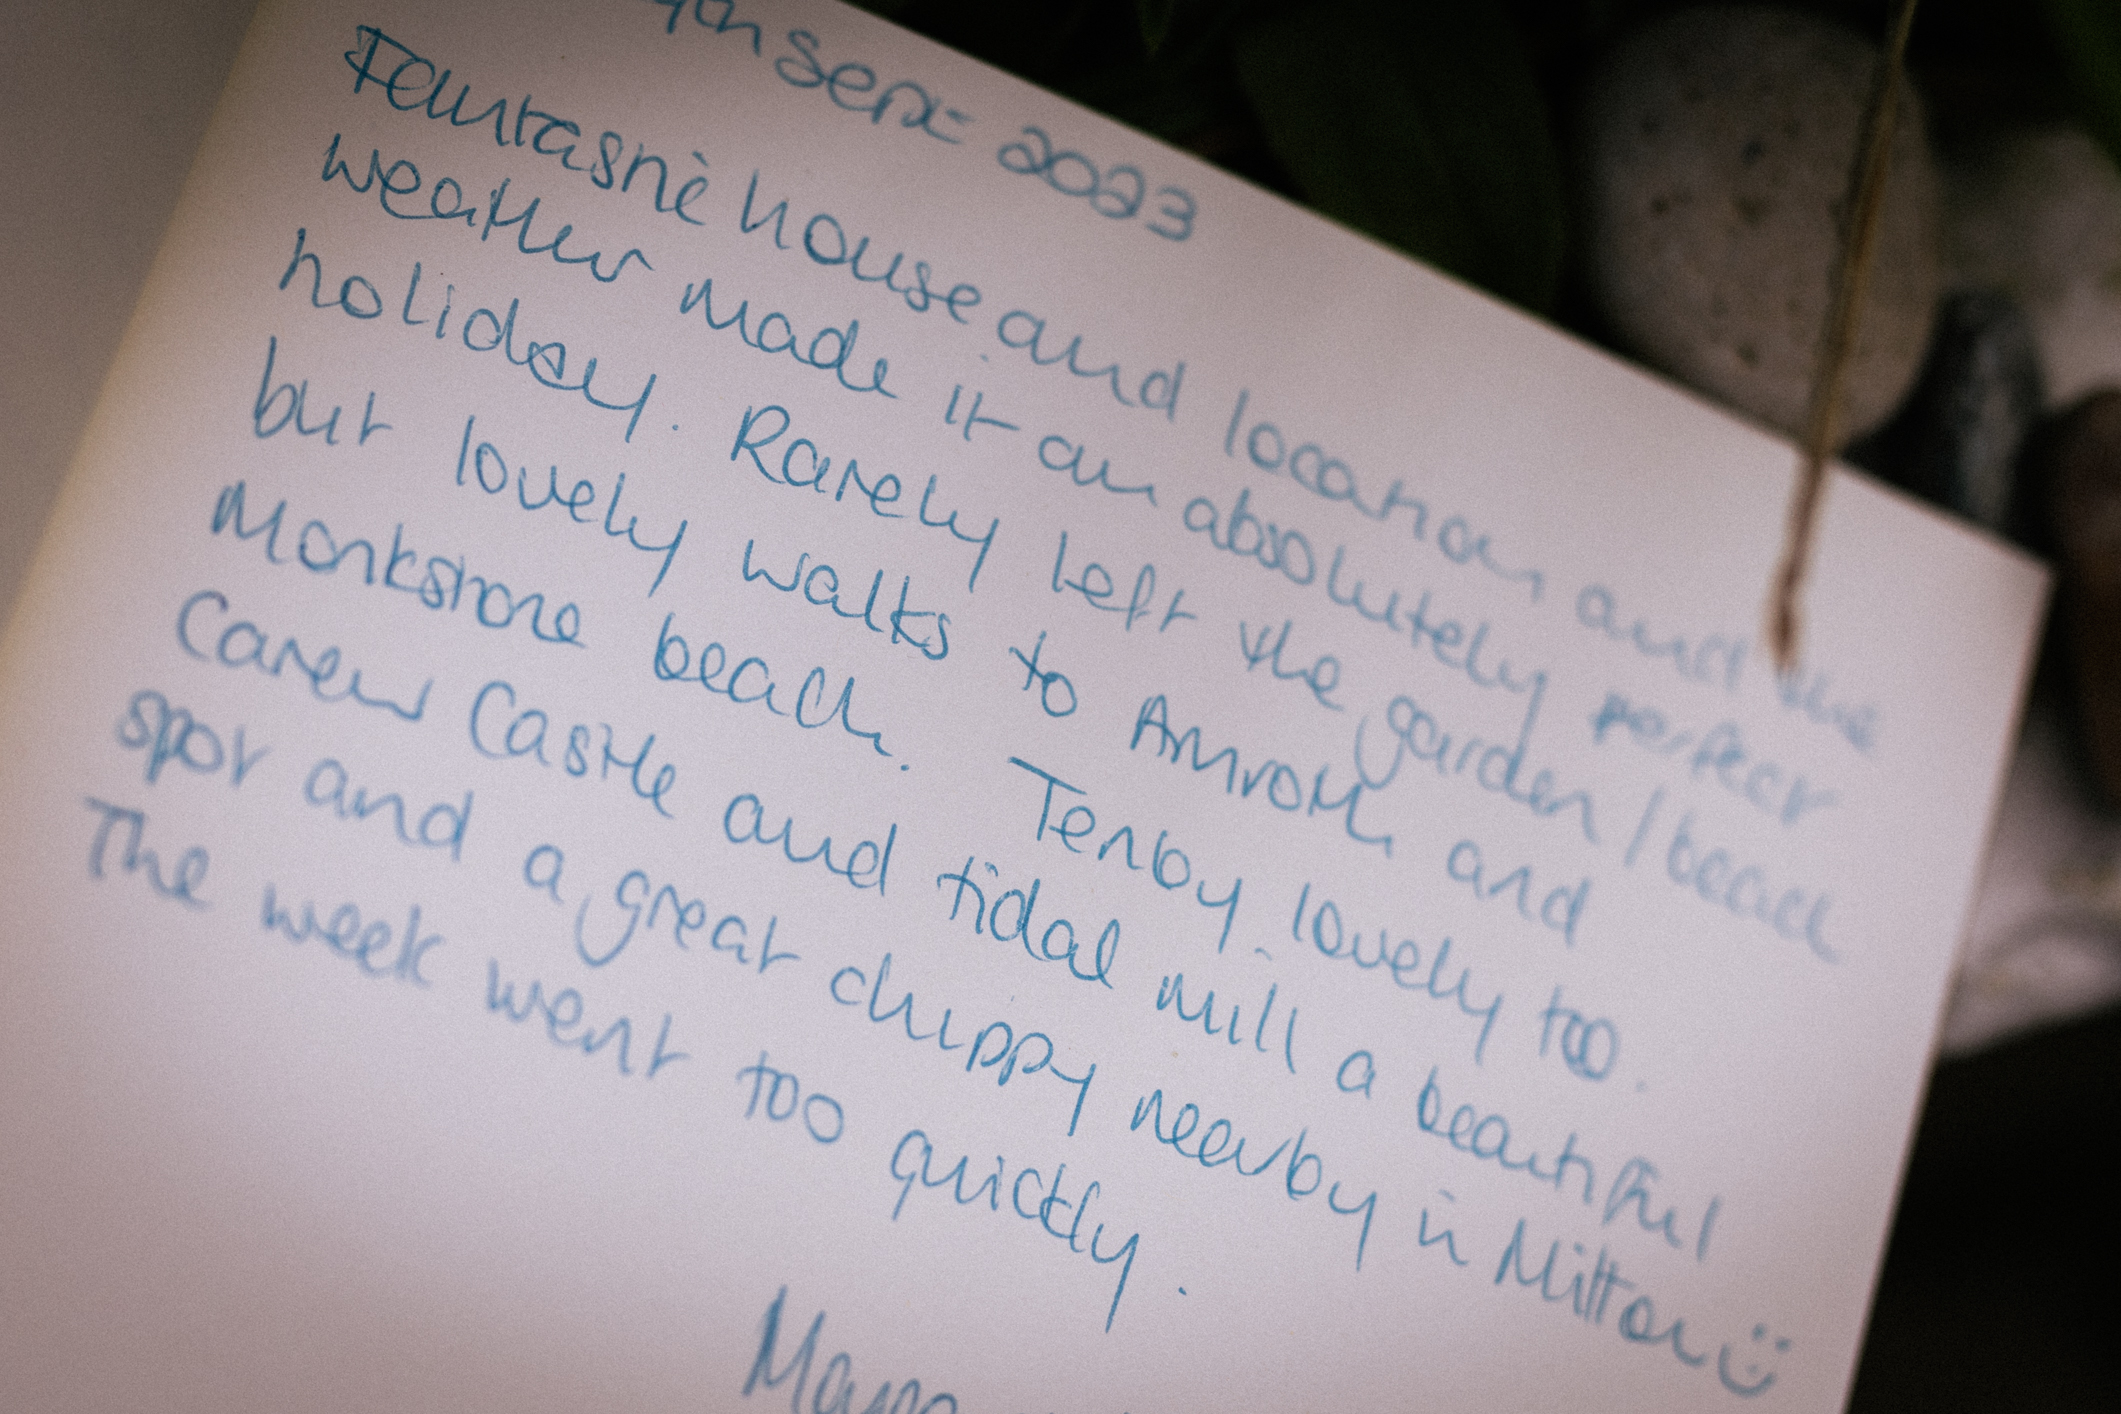 Sept 2023
Fantastic house and location and the
weather made it an absolutely perfect
holiday. Rarely left the garden/beach
but lovely walks to Amroth and
Monkstone beach. Tenby lovely too.
Carew Castle and tidal mill a beautiful
spot and a great chippy nearby in Milton :)
The week went too quickly.